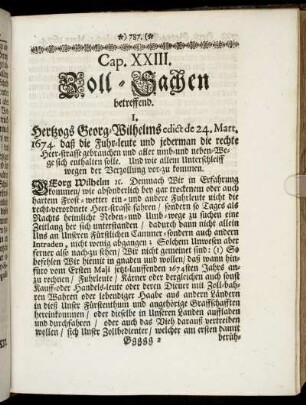 *) 787. (*
Cap. XXIII.
Zoll-Sachen
betreffend.
I.
Hertzogs Georg-Wilhelms edict de 24. Mart.
1674. daß die Fuhr-leute und jederman die rechte
Heer-strasse gebrauchen und aller umb- und neben-We-
ge sich enthalten solle. Und wie allem Unterschleiff
wegen der Verzollung vor-zu kommen.
GEorg Wilhelm ꝛc. Demnach Wir in Erfahrung
kommen/ wie absonderlich bey gar trockenen oder auch
hartem Frost-wetter ein- und andere Fuhrleute nicht die
recht-verordnete Heer-strasse fahren/ sondern so Tages als
Nachts heimliche Neben- und Umb-wege zu suchen eine
Zeitlang her sich unterstanden/ dadurch dann nicht allein
Uns an Unseren Fürstlichen Cammer- sondern auch andern
Intraden, nicht wenig abgangen: Solchem Unwesen aber
ferner also nach-zusehen/ Wir nicht gemeinet sind: (1) So
befehlen Wir hiemit in gnaden und wollen/ daß wann hin-
füro vom Ersten Maji jetzt-lauffenden 1674sten Jahrs an-
zu rechnen/ Fuhrleute/ Kärner oder dergleichen auch sonst
Kauff- oder Handels-leute oder deren Diener mit Zoll-bah-
ren Wahren oder lebendiger Haabe aus andern Ländern
in dieß Unser Fürstenthum und angehörige Graffschafften
hereinkommen/ oder dieselbe in Unseren Landen auffladen
und durchfahren/ oder auch das Vieh darauß vertreiben
wollen/ sich Unser Zollbedienter/ welcher am ersten damit
Ggggg 2 berüh-